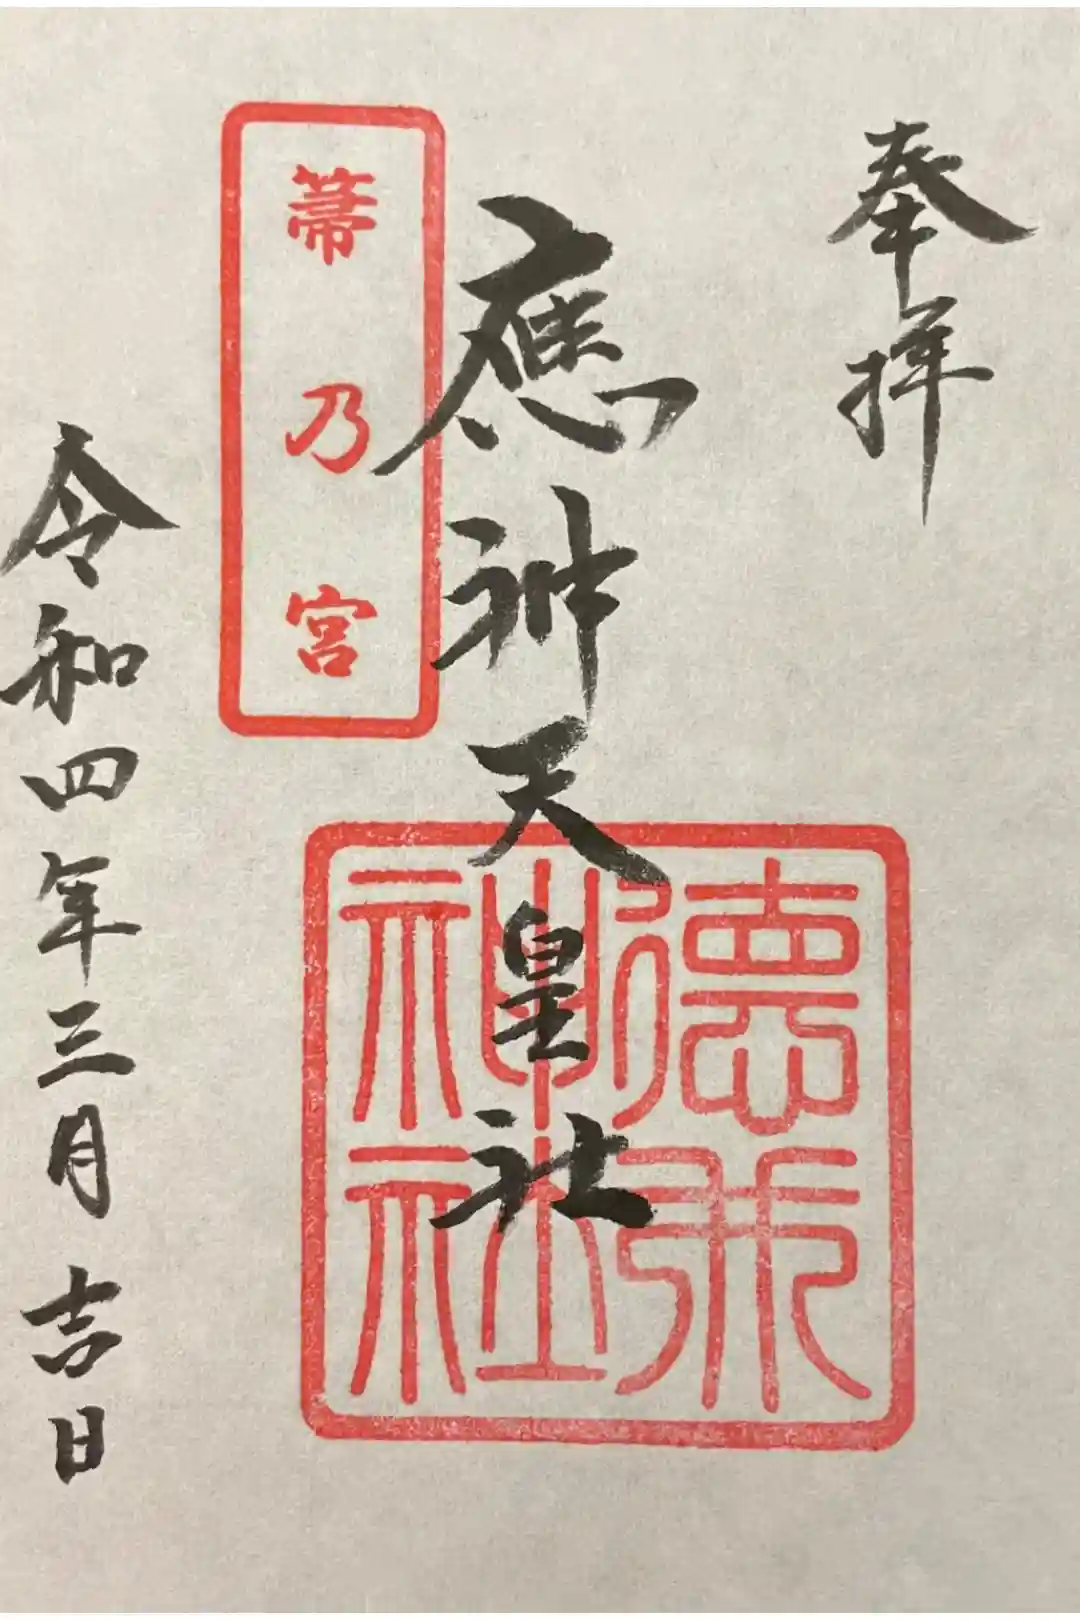 奉拝
應神天皇社
箒乃宮
德永神社
令和四年三月吉日